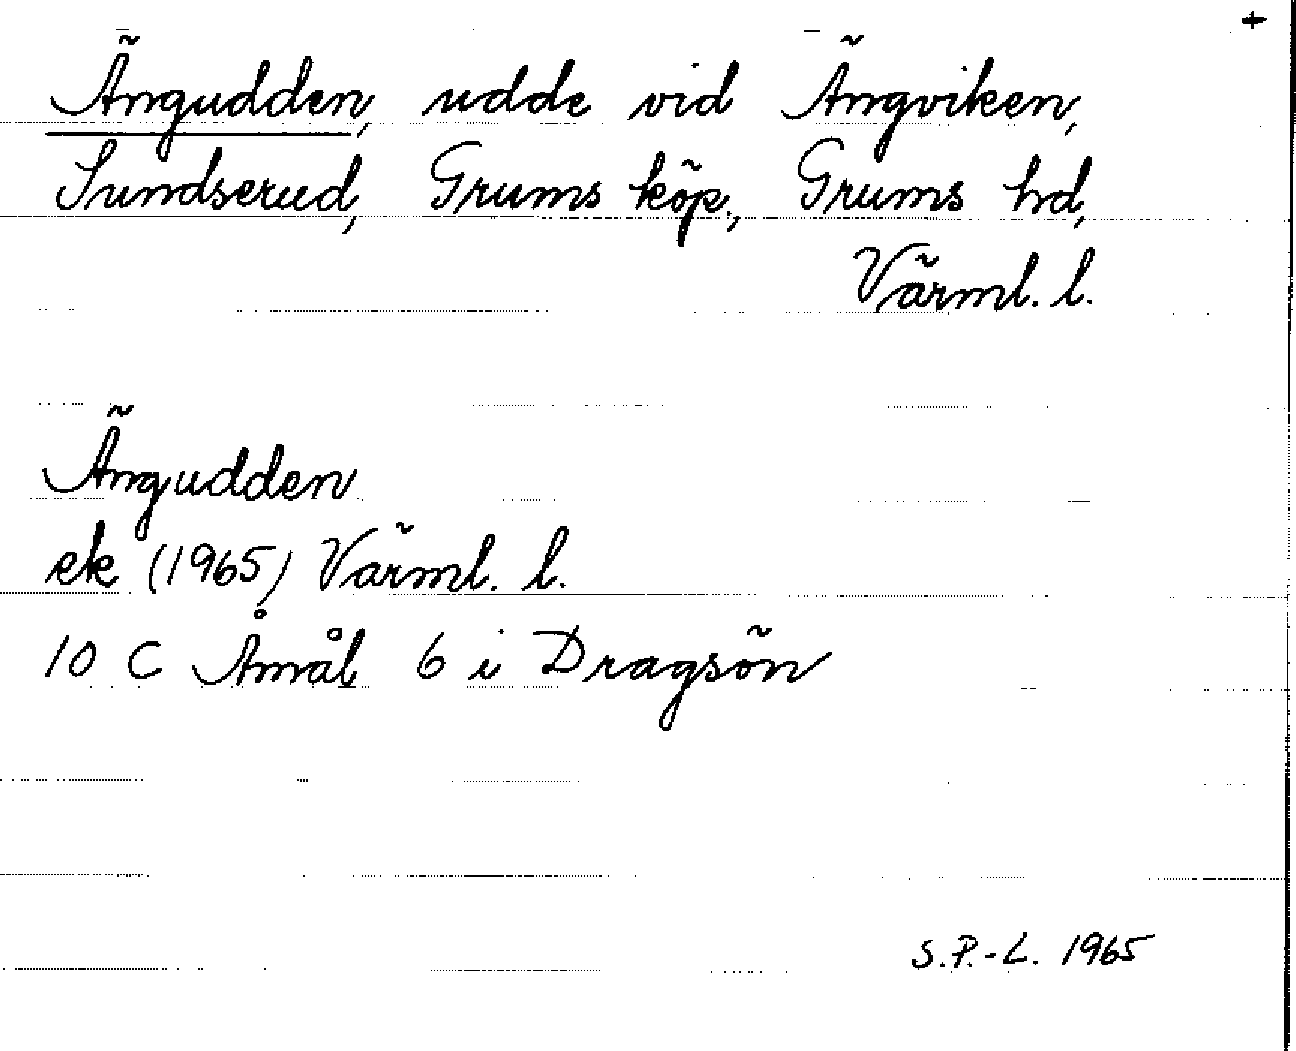 +
Ängudden, udde vid Ängviken,
Sundserud, Grums köp., Grums hd,
Värml. l.
Ängudden
ek (1965) Värml. l.
10 C Åmål 6 i Dragsön
S.P.-L. 1965